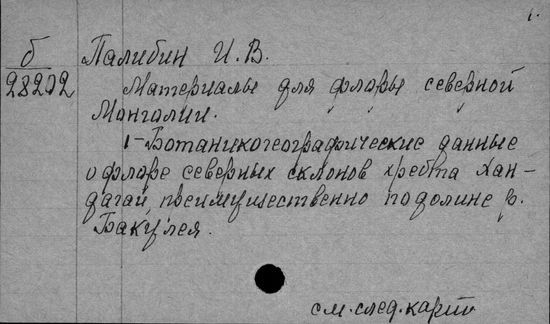 1.
б Палибин И. В.
28202 Материалы для флоры северной
Монгалии.
1-Ботаникогеографические данные
о флоре северных склонов хребта Хан-
дагай, преимущественно по долине р.
Бакулея.
см. след. карт